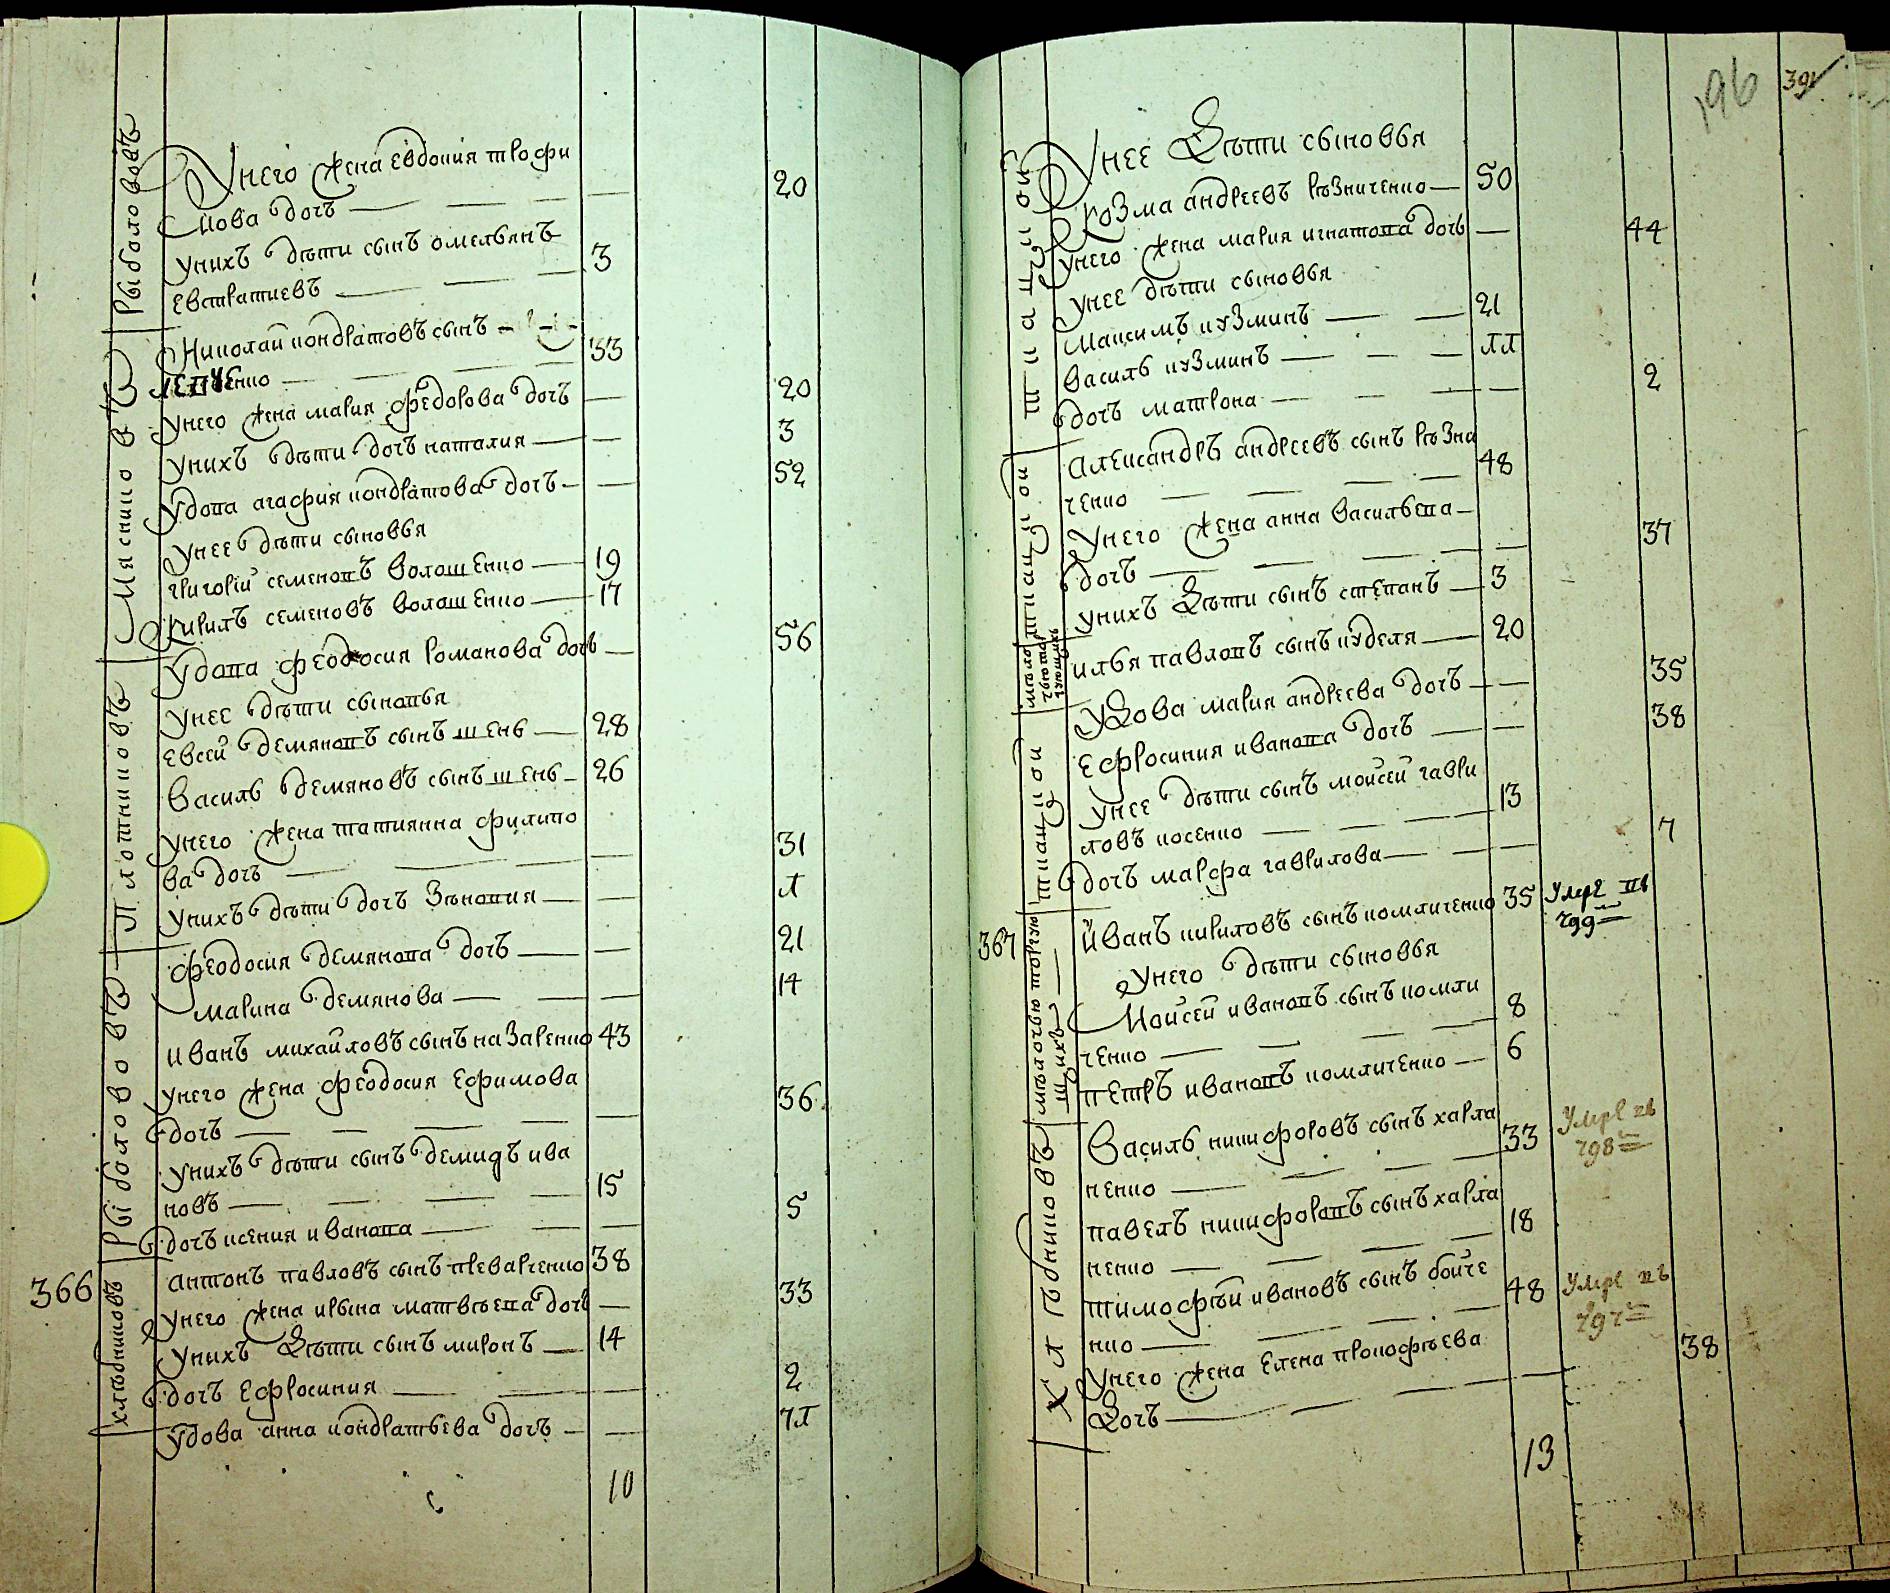 Рыболововъ
Унего жена евдокия трофи
мова дочъ — — — — 20
унихъ дѣти сынъ омельянъ
евстратиевъ — — — 3
Мяснико въ
Николай кондратовъ сынъ —
лепченко — — — — 33
унего жена мария федорова дочъ — 20
унихъ дѣти дочъ наталия — — 3
удова агафия кондратова дочъ — — 52
унее дѣти сыновья
григорій семеновъ волошенко — 19
кирилъ семеновъ волошенко — 17
Плотниковъ
удова феодосия романова дочь — 56
унее дѣти сыновья
евсей демяновъ сынъ шень — 28
василь демяновъ сынъ шень — 26
унего жена татиянна филипо
ва дочъ — — — 31
унихъ дѣти дочъ зѣновия — — л
феодосия демянова дочъ — — 21
марина демянова — — — 14
Рыболововъ
иванъ михайловъ сынъ назаренко 43
унего жена феодосия ефимова
дочъ — — — — — 36
унихъ дѣти сынъ демидъ ива
новъ — — — — 15
дочъ ксения иванова — — — 5
366
хлѣбниковъ
антонъ павловъ сынъ преварченко 38
унего жена ирына матвѣева дочъ — 33
унихъ дѣти сынъ миронъ — 14
дочъ ефросиния — — — 2
удова анна кондратьева дочъ — — 7л
10
196 391
ткацкой
Унее дѣти сыновья
козма андреевъ рѣзниченко — 50
унего жена мария игнатова дочь — 44
унее дѣти сыновья
максимъ кузминъ — — 21
василь кузминъ — — — лл
дочъ матрона — — — — 2
ткацкой
александръ андреевъ сынъ рѣзни
ченко — — — — 48
унего жена анна васильева —
дочъ — — — — — 37
унихъ дѣти сынъ степанъ — 3
мѣло
чью тор
гующихъ
илья павловъ сынъ куделя — 20
удова мария андреева дочъ — — 35
ткацкой
ефросиния иванова дочъ — — 38
унее дѣти сынъ мойсей гаври
ловъ косенко — — — — 13
дочъ марфа гаврилова — — — 7
367
мѣлочью торгую
щихъ
йванъ кириловъ сынъ комличенко 35 Умре въ
799
унего дѣти сыновья
Мойсей ивановъ сынъ комли
ченко — — — — 8
петръ ивановъ комличенко — 6
Хлѣбниковъ
василь никифоровъ сынъ харла
ненко — — — — 33 Умре въ
798
павелъ никифоровъ сынъ харла
ненко — — — — 18
тимофѣй ивановъ сынъ бойче
нко — — — — 48 Умре въ
797
унего жена елена прокофѣева
дочъ — — — — 38
13